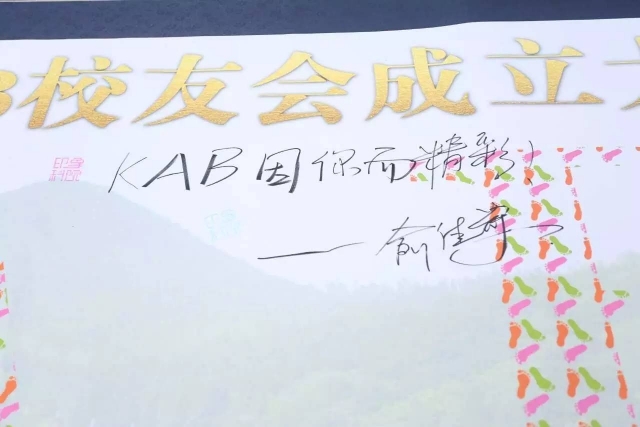 B校友会成立
KAB因你而精彩!
——俞佳